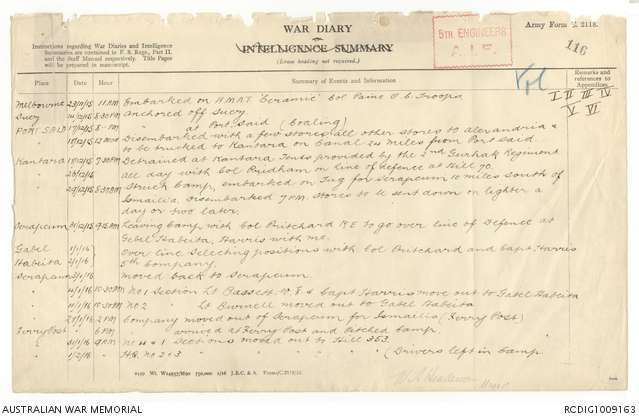 WAR DIARY
or
INTELLIGENCE SUMMARY
(Erase heading not required.)
Instructions regarding War Diaries and Intelligence
Summaries are contained in F. S. Regs., Part II.
and the Staff Manual respectively. Title Pages
will be prepared in manuscript.
5TH ENGINEERS
A.I.F.
Army Form C. 2118.
116
Place Date Hour Summary of Events and Information Remarks and references to Appendices
Melbourne 23/11/15 11 AM Embarked on HMAT "Ceramic" Col Paine O.C. Troops I II III IV
Suey 14/12/15 8.30 PM Anchored off Suey V VI
PORT SAID 17/12/15 5 PM " at Port Said (Coaling)
" 18/12/15 12 noon Disembarked with a few stores all other stores to Alexandria &
to be trucked to Kantara on Canal 24 miles from Port Said.
Kantara 18/12/15 7.30 PM Detrained at Kantara Tents provided by the 2nd Gurhak Regiment
" 28/12/15 all day with Col Pridham on line of defence at Hill 70.
" 29/12/15 5.30 PM Struck Camp, embarked on Tug for Serapeum 10 miles south of
Ismailia, Disembarked 7 PM. Stores to be sent down on lighter a
day or two later.
Serapeum 31/12/15 9.15 AM Leaving Camp with Col Pritchard R E to go over line of Defence at
Gebel Habeita, Harris with me.
Gabel 1/1/16 Over line Selecting positions with Col Pritchard and Capt. Harris
Habeita 2/1/16 5th Company.
Serapeum 3/1/16 Moved back to Serapeum.
No 1 Section Lt Bassett N.Z & Capt Harris move out to Gabel Habeita
No 2 " Lt Burnell moved out to Gabel Habeita
2 PM Company moved out of Serapeum for Ismailia (Ferry Post)
Ferry Post " 6 PM " arrived at Ferry Post and Pitched Camp.
31/1/16 9 AM No 4 & 1 Sections moved out to Hill 353.
" 1/2/16 " HQ. No 2 & 3 " " " (Drivers left in Camp
J.B.C. & A.
AUSTRALIAN WAR MEMORIAL
RCDIG1009163